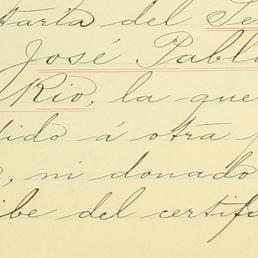 tarta del Se
José Pabl
Rio, la que
dido á otra p
, ni donado
ibe del certif